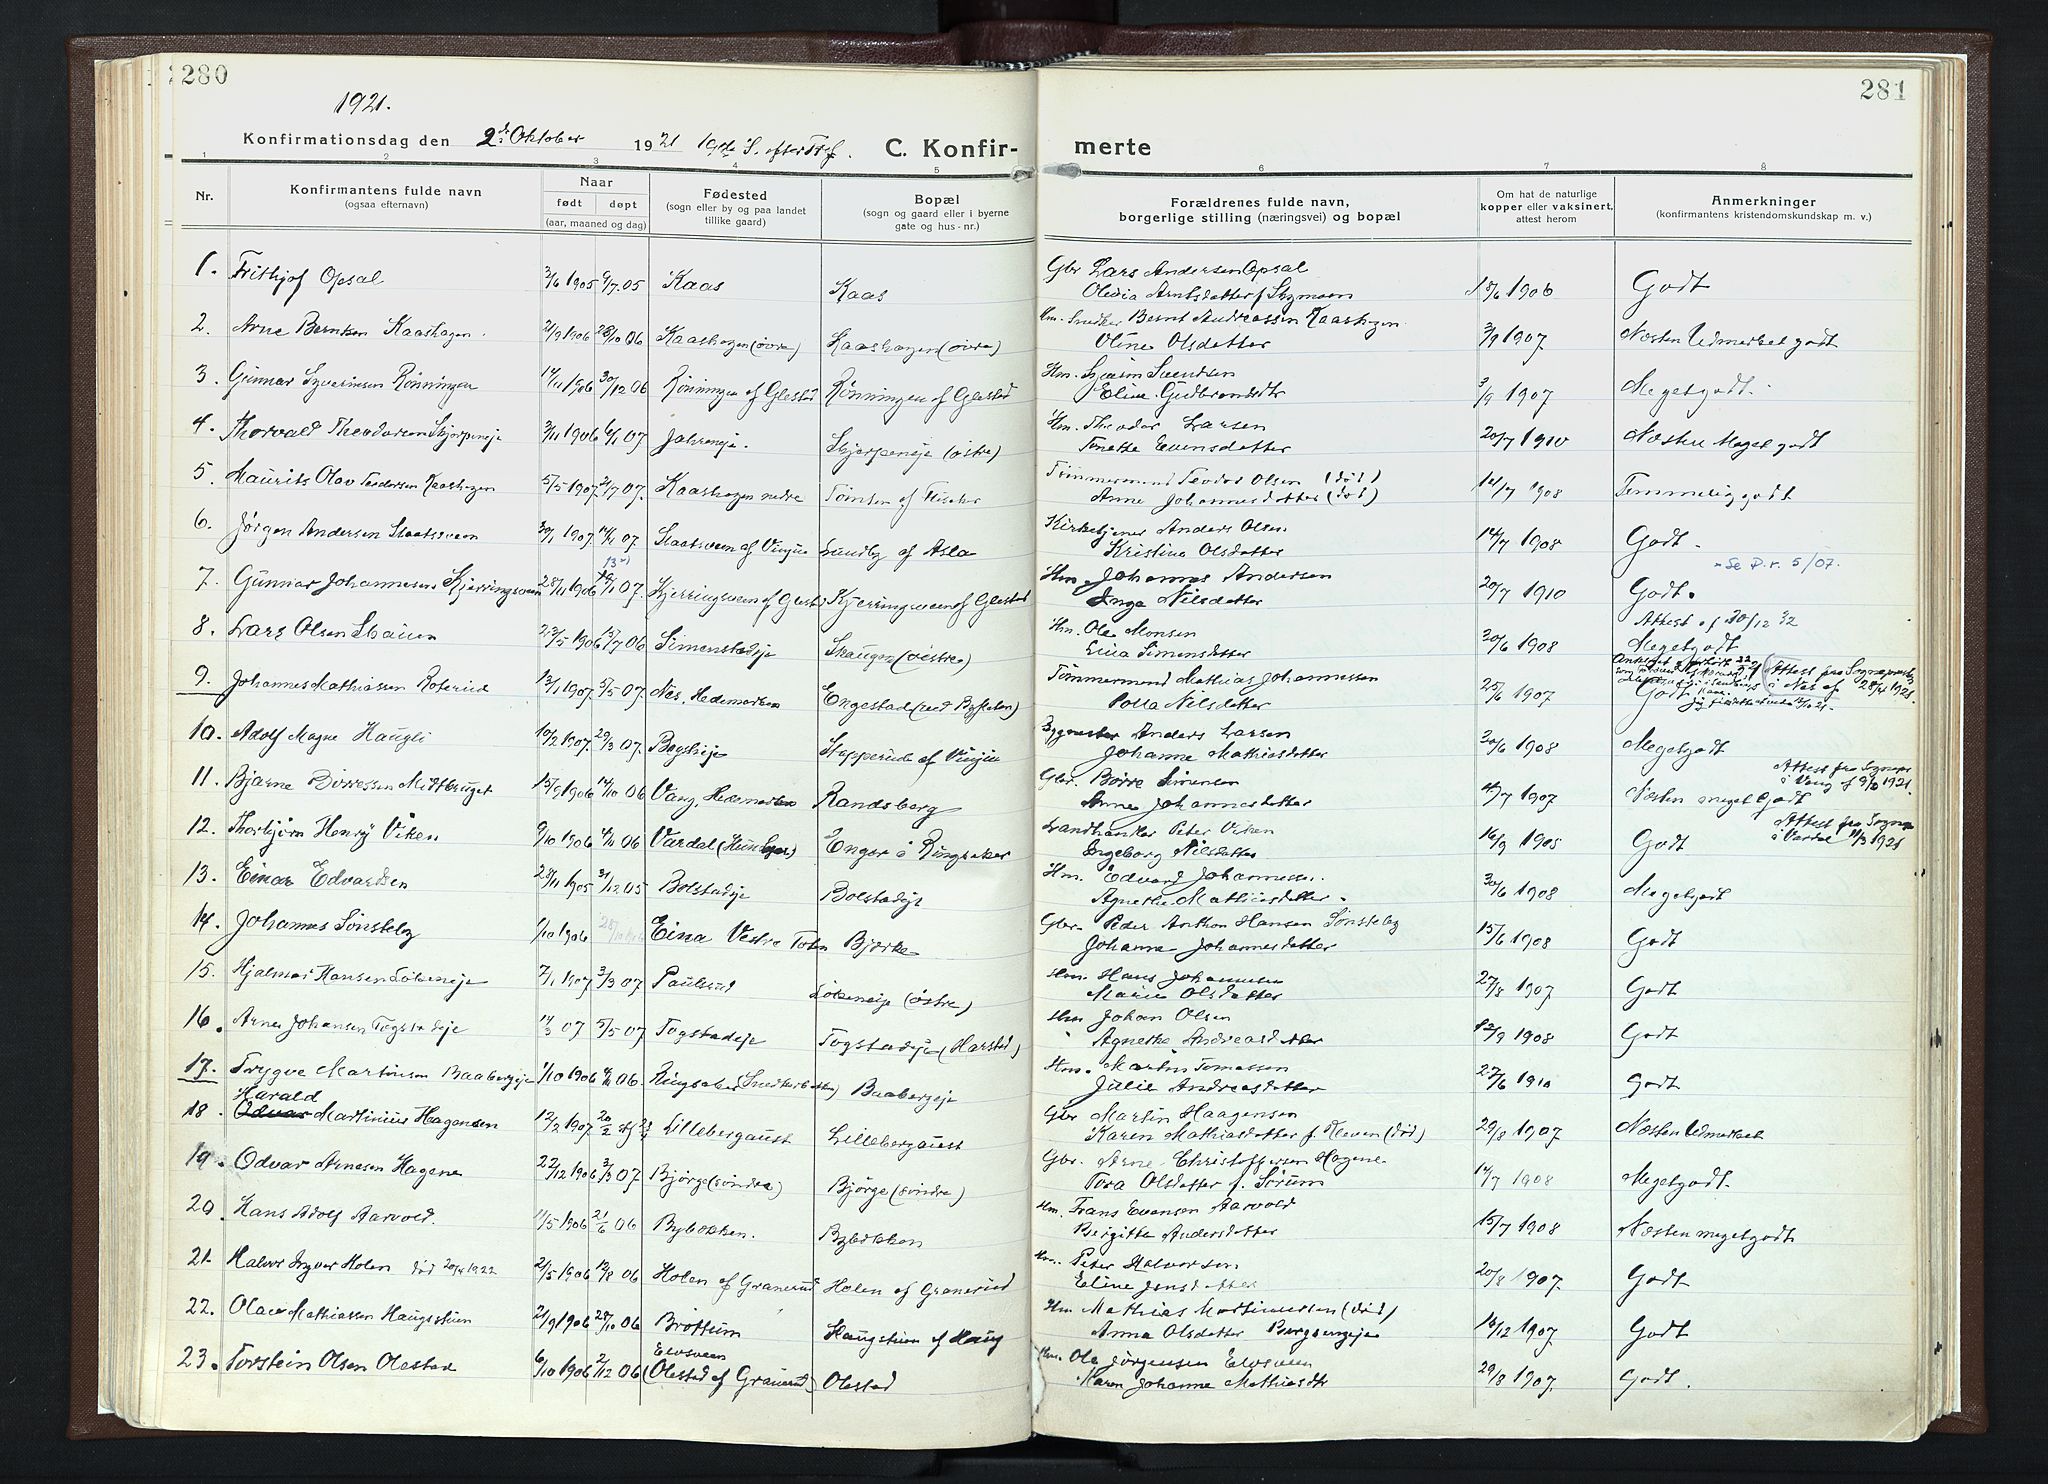 280
281
1921.
Konfirmationsdag den 2. Oktober 1921 19de S. efter Tref. C. Konfirmerte
1 2 3 4 5 6 7 8
Nr.
Konfirmantens fulde navn
(ogsaa efternavn)
Naar
født døpt
(aar, maaned og dag)
Fødested
(sogn eller by og paa landet
tillike gaard)
Bopæl
(sogn og gaard eller i byerne
gate og hus-nr.)
Forældrenes fulde navn,
borgerlige stilling (næringsvei) og bopæl
Om hat de naturlige
kopper eller vaksinert,
attest herom
Anmerkninger
(konfirmantens kristendomskundskap m. v.)
1. Frithjof Opsal 3/6 1905 9/7 05 Kaas Kaas Gbr Lars Andersen Opsal 1906 Godt
Olivia Arntsdatter f.
2. Arne Berntsen Kaashagen 21/9 1906 28/10 06 Kaashagen (øvre) Kaashagen (øvre) Hm. Snedker Bernt Andreassen Kaashagen 3/9 1907 Næsten Udmerket godt
Oline Olsdatter
3. Gunnar Syverinsen Rønningen 14/11 1906 30/12 06 Rønningen af Glestad Rønningen af Glestad Hm. Svendsen 3/9 1907 Megetgodt.
Eline Gudbrandsdtr
4. Thorvald Theodorsen Skjerpeneje 3/11 1906 6/1 07 Jahreneje. Skjerpeneje (østre) Hm. Theodor Larsen 20/7 1910 Næsten Meget godt
Tonette Evensdatter
5. Maurits Olav Teodorsen Kaashagen 5/5 1907 21/7 07. Kaashagen nedre Tømten af Fischer Tømmermand Teodor Olsen (død) 1908 Temmelig godt
Anne Johannesdatter (død)
6. Jørgen Andersen Slaatsveen 30/1 1907 07 Slaatsveen af Vinju Lundby af Asla Kirketjener Anders Olsen 14/7 1908 Godt.
Kristine Olsdatter
Se D. r. 5/07.
7. Gunnar Johannesen Kjerringsveen 28/11 1906 07. Kjerringsveen af Glestad Kjerringsveen af Glestad Hm. Johannes Andersen 20/7 1910 Godt.
Inga Nilsdatter
Attest af 30/12 32
8. Lars Olsen 23/5 1906 15/7 06 Simenstadeje Skaugen (vestre) Hm. Ole Monsen 30/6 1908 Megetgodt
Erica Simensdatter
9. Johannes Mathiassen Roterud 13/1 1907 5/5 07. Næs, Hedemarken Engestad (ved Tømmermand Mathias Johannessen 25/6 1907 Godt
Nilsdatter
Attest fra Sognepresten
i Næs af 28/4 1921
10. Adolf Magne Haugli 10/2 1907. 29/3 07. Stapperud af Vinju Anders Larsen 30/6 1908 Megetgodt
Johanne Mathiasdatter
11. Bjarne Børressen Midthruget 15/9 1906 14/10 06 Vang, Hedemarken Randsberg Gbr. Børre Simensen 1907 Næsten meget Godt
Anne Johannesdatter
Attest fra Sognepr.
i Vang af 1921.
12. Thorbjørn Henry Viken 9/10 1906 06 Vardal Enger i Ringsaker Landhandler Peter Viken 16/9 1905 Godt
Ingeborg Nilsdatter
Attest fra Sognepr
i Vardal 11/3 1921
13. Einar Edvardsen 28/11 1905 31/12 05 Bolstadeje Bolstadeje Hm. Edvard Johannessen. 30/6 1908 Megetgodt
Agnethe Mathiasdatter.
14. Johannes Sønsteby 1/10 1906 28/10 1906 Eina Vestre Toten Bjerke Gbr. Peder Anthon Hansen Sønsteby 15/6 1908 Godt
Johanne Johannesdatter
15. Hjalmar Hansen Løkeneje 7/1 1907 3/3 07 Paulsrud Løkeneje (østre) Hm. Hans Johannesen 27/8 1907 Godt
Marie Olsdatter
16. Arne Johansen Togstadeje 14/3 07 5/5 07 Togstadeje Togstadeje (Harstad) Hm Johan Olsen 12/9 1908 Godt
Agnethe Andreasdatter
17. Trygve Martinsen Baabergeje 1/10 1906 06. Ringsaker Baabergeje Hm. Martin Tomassen 27/6 1910 Godt
Julie Andreasdatter
Harald
18. Odvar Martinius Hagensen 12/2 1907. Lillebergaust Lillebergaust Gbr Martin Haagensen 29/8 1907 Næsten Udmerket
Karen Mathiasdatter f. Kleven (død)
19. Odvar Arnesen Hagene 22/12 1906 3/3 07. Bjørge (søndre) Bjørge (søndre) Gbr. Arne Christoffersen Hagene. 14/7 1908 Megetgodt.
Tora Olsdatter f. Sørum
20. Hans Adolf Aarvold. 11/5 1906 21/6 06 Bybækken. Bybækken Hm. Frans Evensen Aarvold 15/7 1908 Næsten megetgodt
Birgitte Andersdatter
21. Halvor Yngvar Holen død 20/4 1922 21/5 1906 12/8 06 Holen af Granerud Holen af Granerud Hm. Peter Halvorsen 20/8 1907. Godt
Eline Jensdatter
22. Olav Mathiassen Haugstuen 21/9 1906 28/10 06 Brøttum Haugstuen af Haug Hm Mathias Martinussen (død) 16/12 1907. Godt
Anna Olsdatter Bergsengeje
23. Torstein Olsen Olestad 6/10 1906 2/12 06 Elvsveen (Olestad af Granerud) Olestad Hm. Ole Jørgensen Elvsveen 29/8 1907. Godt.
Karen Johanne Mathiasdtr